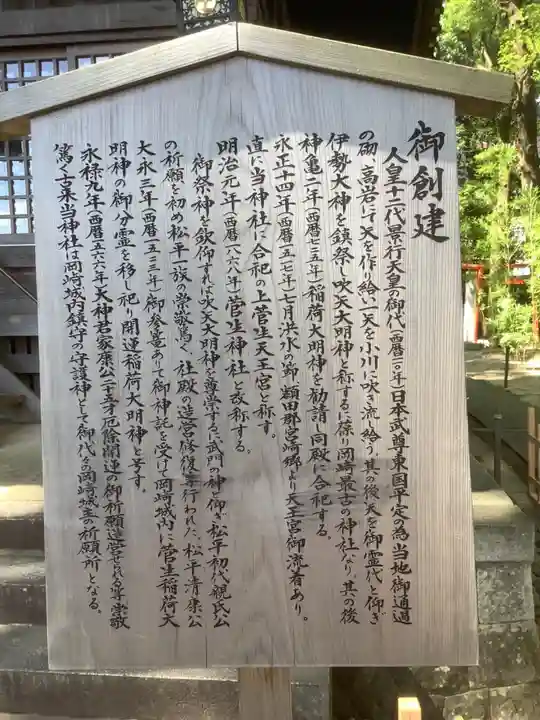 御創建
人皇十二代景行天皇の御代(西暦一一〇年)日本武尊東国平定の為当地御通過
の砌、高岩にて矢を作り給い一矢を小川に吹き流し給う。其の後矢を御霊代と仰ぎ
伊勢大神を鎮祭し吹矢大明神と称するに依り岡崎最古の神社なり。其の後
神亀二年(西暦七二五年)稲荷大明神を勧請し同殿に合祀する。
永正十四年(西暦一五一七年)七月洪水の節、額田郡宮崎郷より天王宮御流着あり。
直に当神社に合祀の上菅生天王宮と称す。
明治元年(西暦一八六八年)菅生神社と改称する。
御祭神を欽仰すれば吹矢大明神を尊崇するに武門の神と仰ぎ松平初代親氏公
の祈願を初め松平一族の崇敬篤く、社殿の造営修復等行われた。松平清康公
大永三年(西暦一五二三年)御参篭あって御神託を受けて岡崎城内に菅生稲荷大
明神の御分霊を移し祀り開運稲荷大明神と号す。
永禄九年(西暦一五六六年)大神君家康公二十五才厄除開運の御祈願造営される等崇敬
篤く古来当神社は岡崎城内鎮守の守護神として御代々の岡崎城主の祈願所となる。